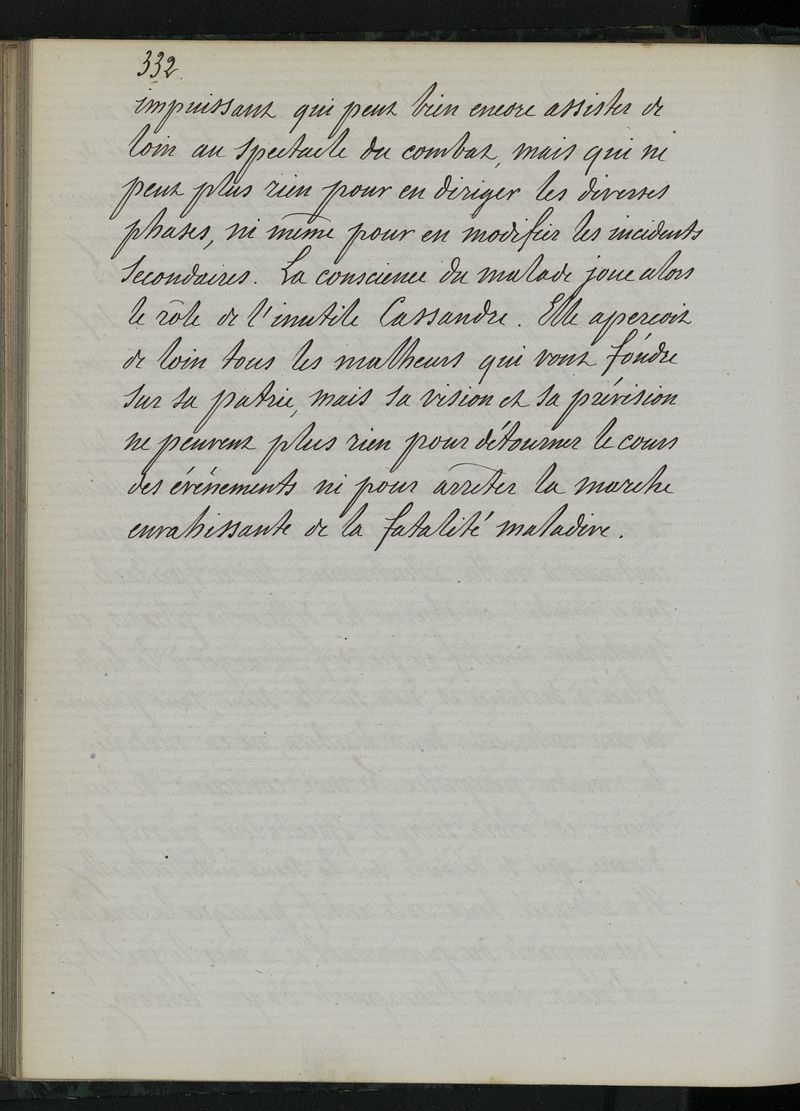 332.
impuissant qui peut bien encore assister de
loin au spectacle du combat, mais qui ne
peut plus rien pour en diriger les diverses
phases, ni même pour en modifier les incidents
secondaires. La conscience du malade joue alors
le rôle de l'inutile Cassandre. Elle aperçoit
de loin tous les malheurs qui vont fondre
sur sa patrie, mais sa vision et sa prévision
ne peuvent plus rien pour détourner le cours
des événements ni pour arrêter la marche
envahissante de la fatalité maladive.